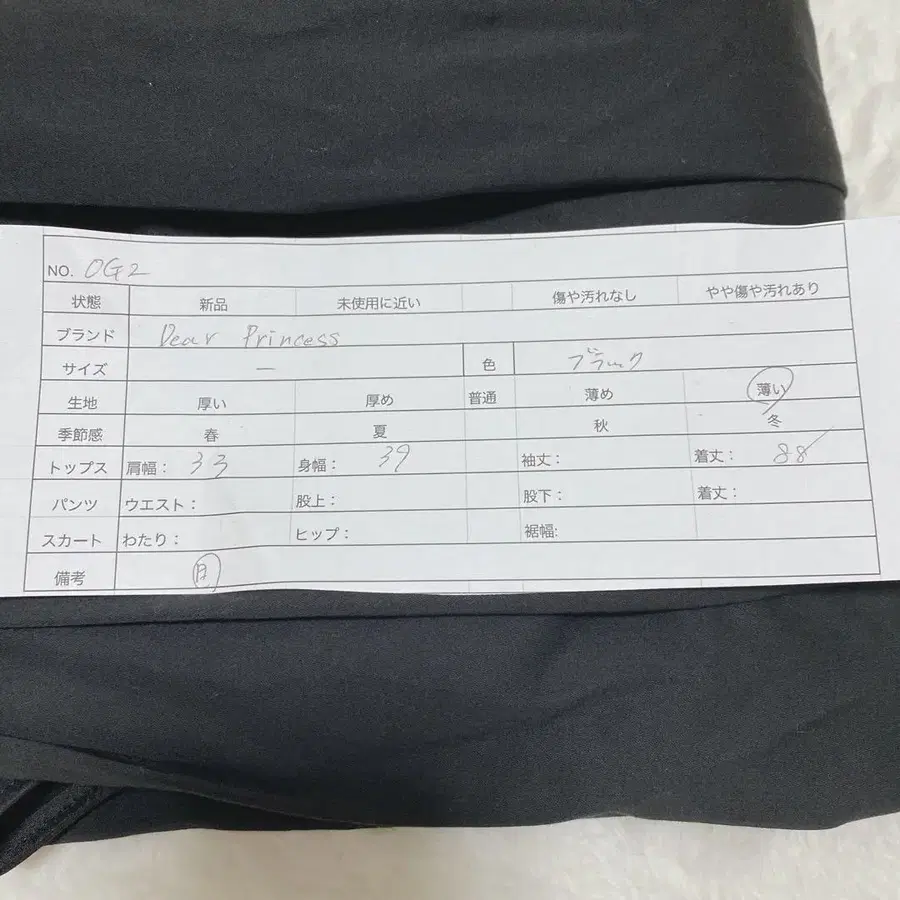 NO. OG2
状態 新品 未使用に近い 傷や汚れなし やや傷や汚れあり
ブランド Dear Princess
サイズ — 色 ブラック
生地 厚い 厚め 普通 薄め 薄い
季節感 春 夏 秋 冬
トップス 肩幅: 33 身幅: 39 袖丈: 着丈: 88
パンツ ウエスト: 股上: 股下: 着丈:
スカート わたり: ヒップ: 裾幅:
備考